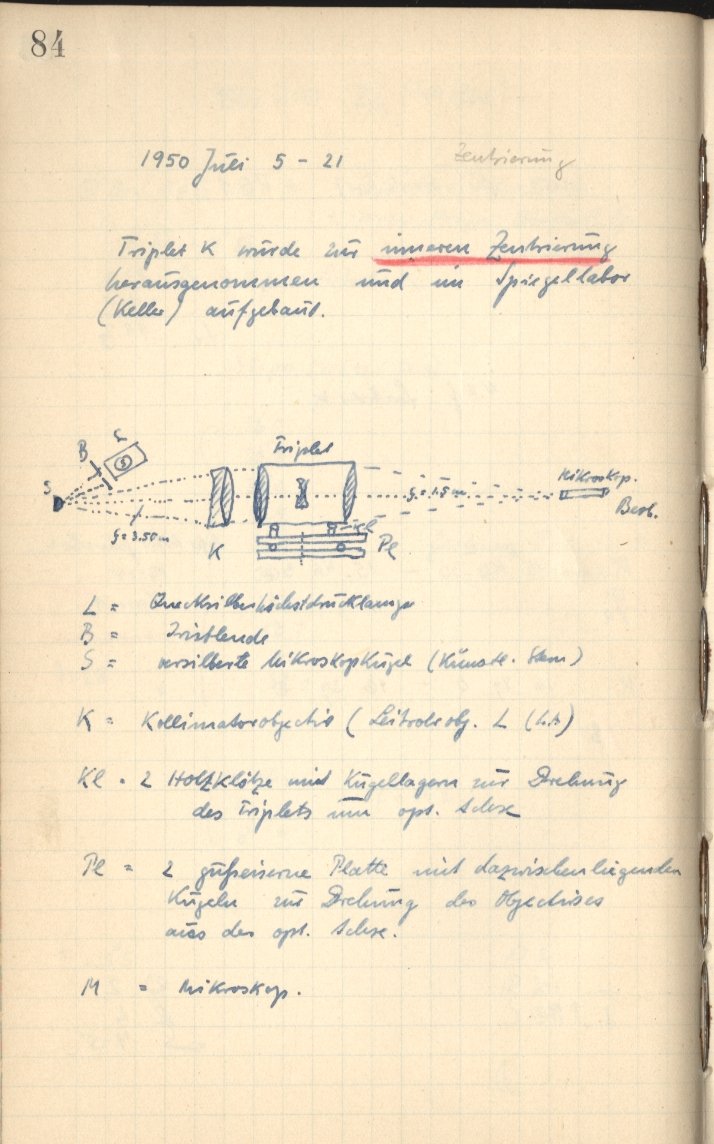 84
1950 Juli 5 - 21
Zentrierung
Triplet K wurde zur inneren Zentrierung
herausgenommen und im Spiegellabor
(Keller) aufgebaut.
L
B
S
f = 3.50 m
K
Triplet
Kl
Pl
f = 1.5 m
Mikroskop.
Beob.
L = Quecksilberhöchstdrucklampe
B = Irisblende
S = versilberte Mikroskopkugel (Künstl. Stern)
K = Kollimatorobjectiv (Leitrohrobj. L
Kl = 2 Holzklötze mit Kugellagern zur Drehung
des Triplets um opt. Achse
Pl = 2 gußeiserne Platte mit dazwischenliegenden
Kugeln zur Drehung des Objectives
aus der opt. Achse.
M = Mikroskop.